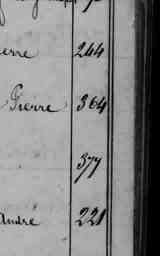 erre 244
Pierre 364
377
André 221